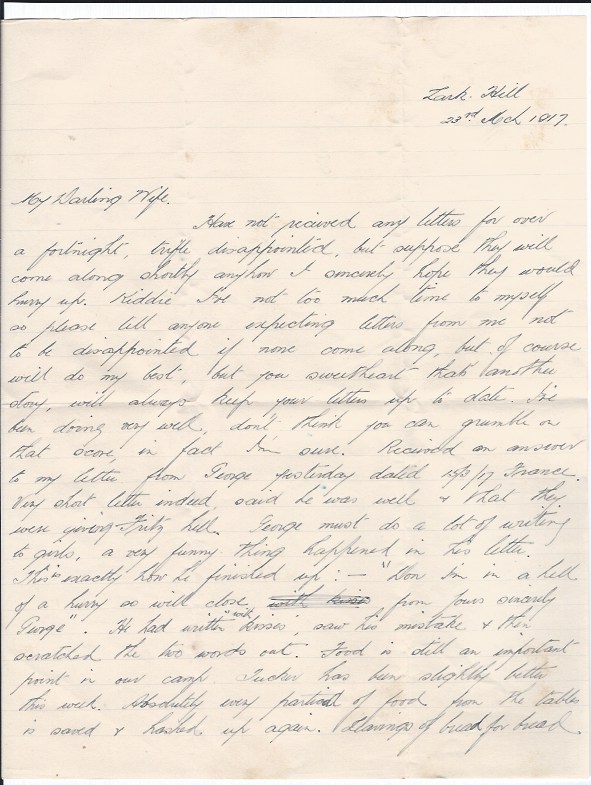 Lark Hill
23rd Mch 1917.
My Darling Wife.
Have not recieved any letters for over
a fortnight, trifle disappointed, but suppose they will
come along shortly anyhow I sincerely hope they would
hurry up. Kiddie I've not too much time to myself
so please tell anyone expecting letters from me not
to be disappointed if none come along, but of course
will do my best, but you sweetheart thats another
story, will always keep your letters up to date. I've
been doing very well, don't think you can grumble on
that score, in fact I'm sure. Recieved an answer
to my letter from George yesterday dated 15/3/17 France.
Very short letter indeed, said he was well & that they
were giving Fritz hell. George must do a lot of writing
to girls, a very funny thing happened in his letter.
This exactly how he finished up :— "Non I'm in a hell
of a hurry so will close with kisses from yours sincerly
George". He had written "with kisses", saw his mistake & then
scratched the two words out. Food is still an important
point in our camp Tucker has been slightly better
this week. Absolutely every particul of food from the tables
is saved & hashed up again. of bread for bread.